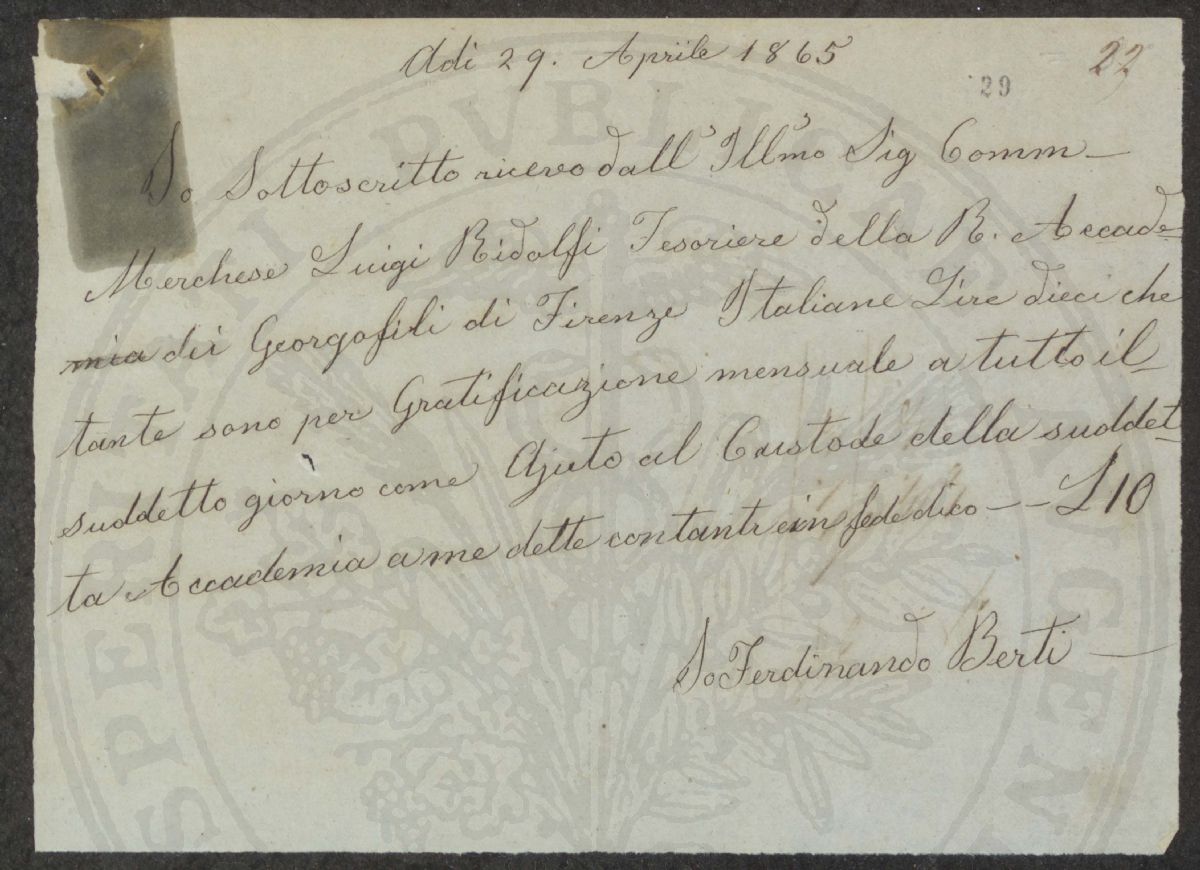 Adi 29. Aprile 1865
22
29
Io Sottoscritto ricevo dall' Ill̃mo Sig Comm—
Merchese Luigi Ridolfi Tesoriere della R. Accade-
mia dei Georgofili di Firenze Italiane Lire dieci che
tante sono per Gratificazione mensuale a tutto il-
suddetto giorno come Ajuto al Custode della suddet-
ta Accademia a me dette contanti e in fede dico — — L 10
Io Ferdinando Berti —
PVBLICAE
PROSPERITATI
AVGENDAE